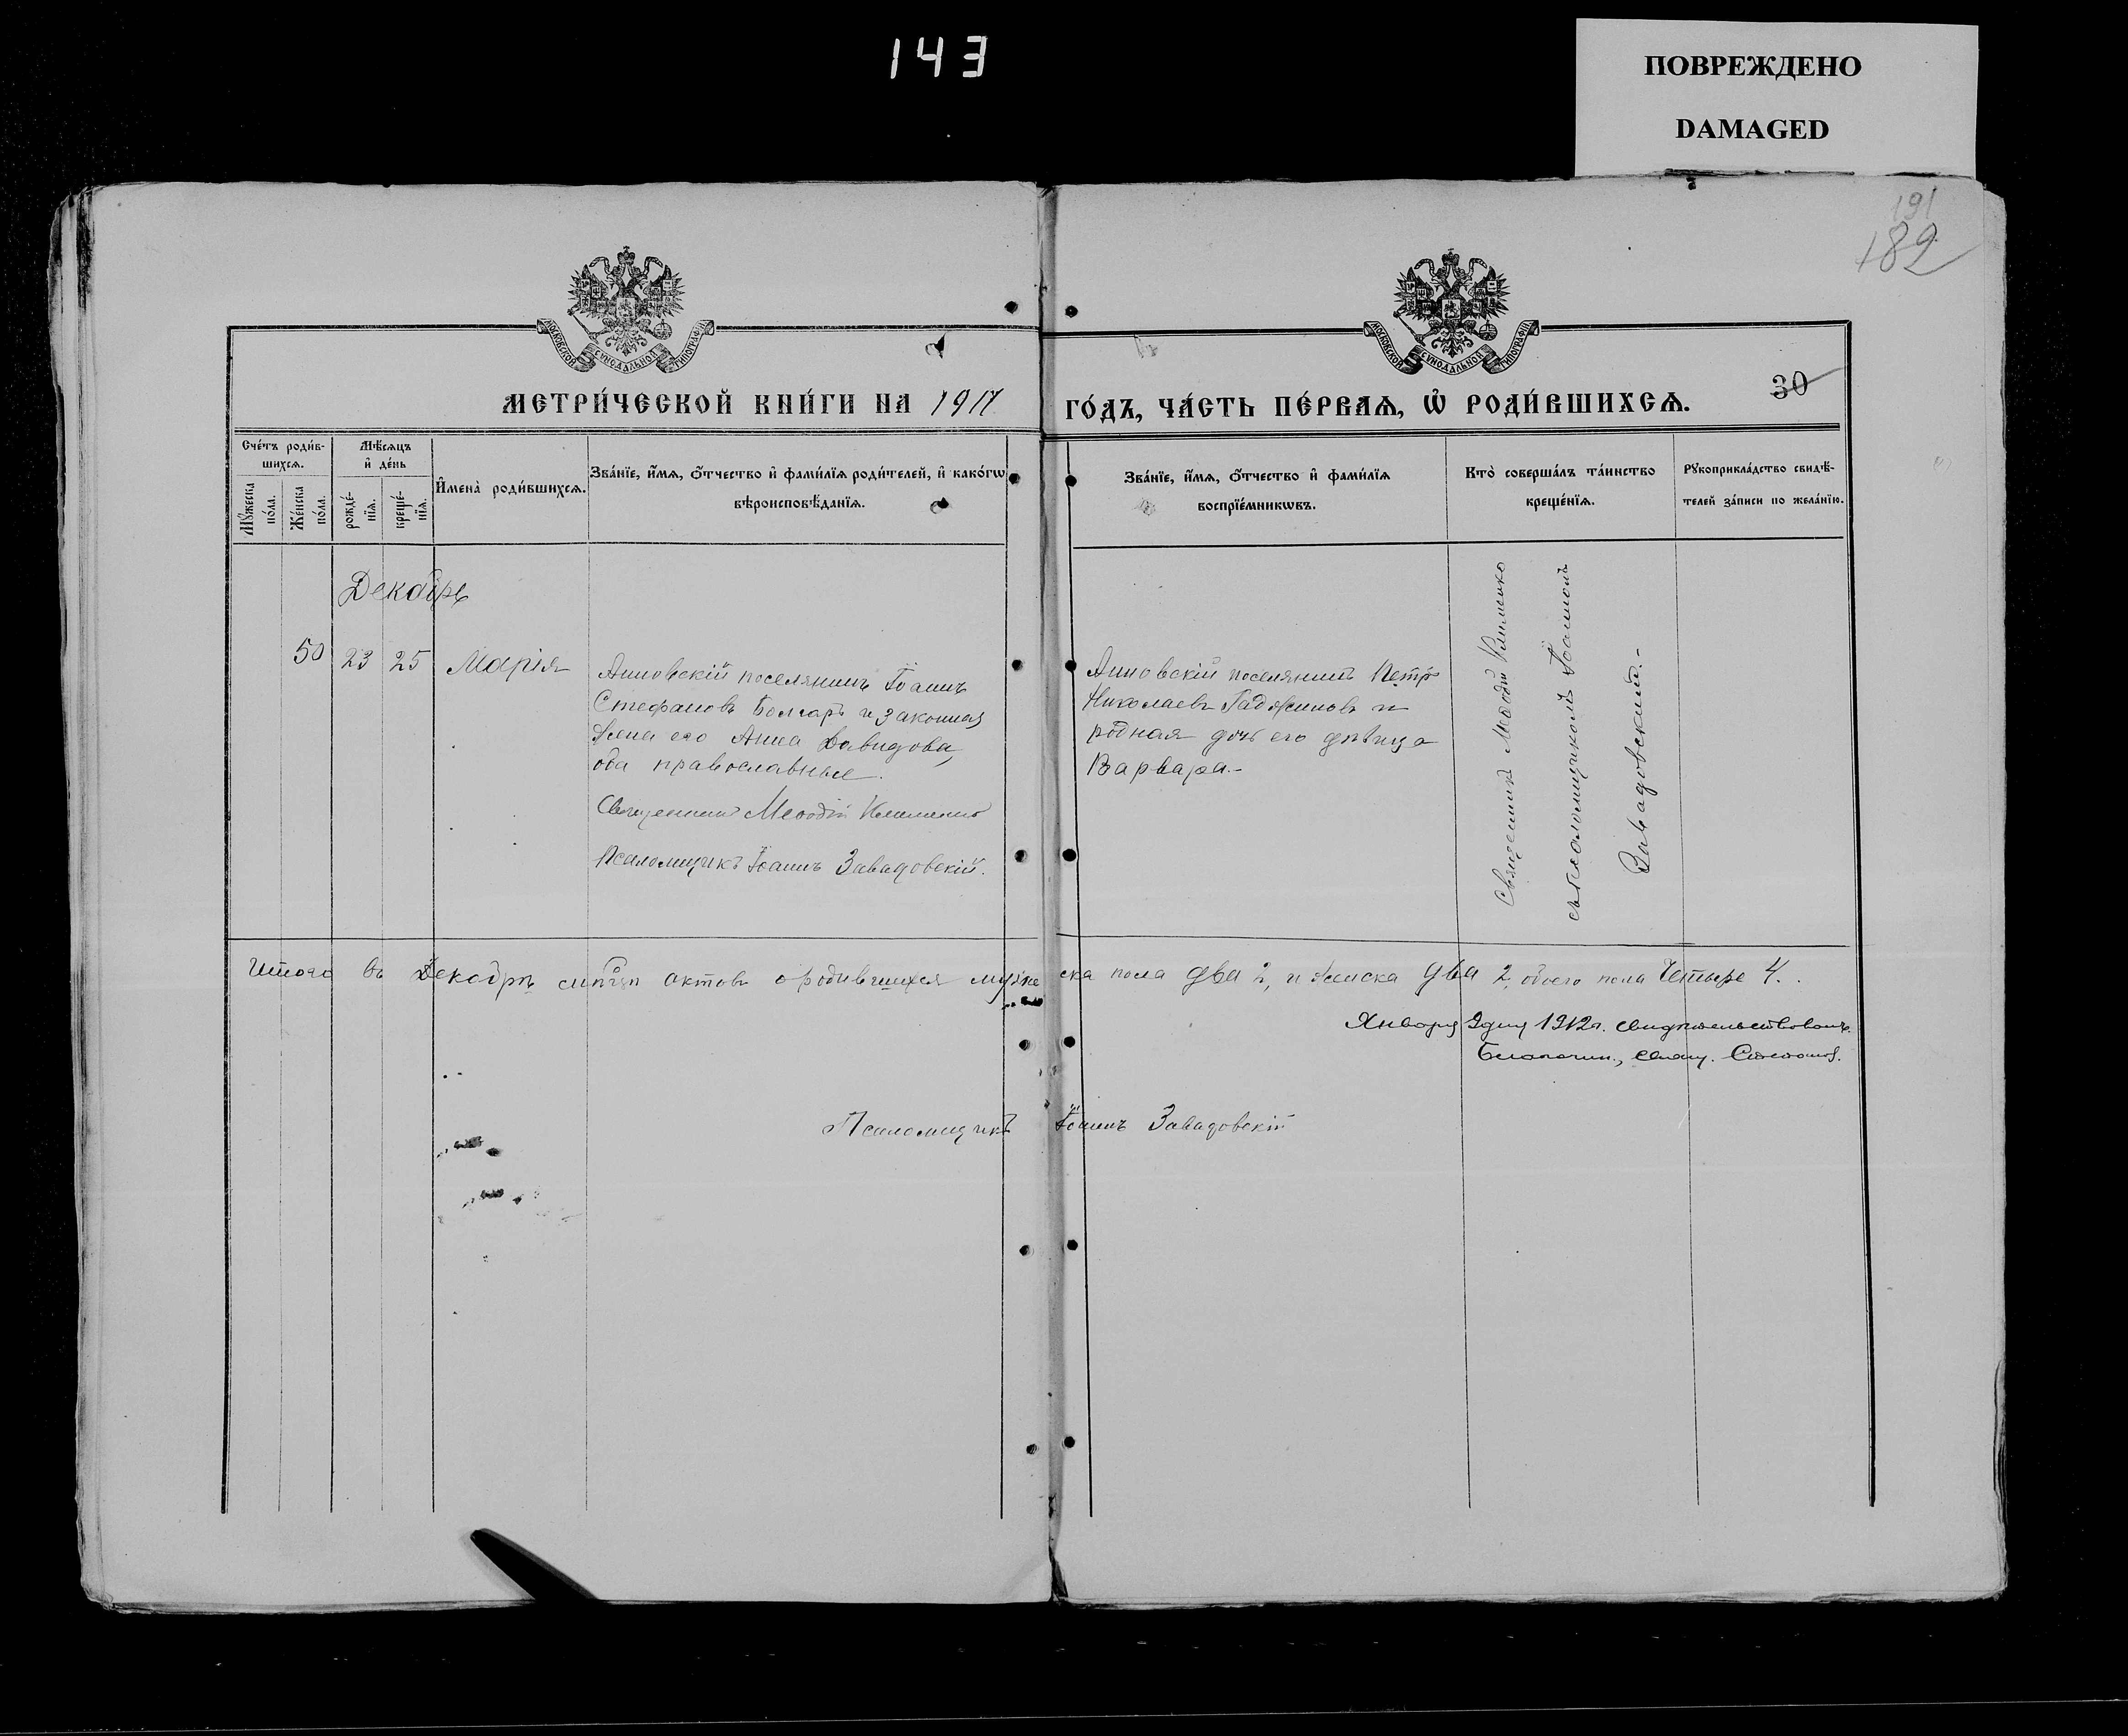 143
ПОВРЕЖДЕНО
DAMAGED
191
182
МОСКОВСКОЙ СѴНОДАЛЬНОЙ ТИПОГРАФІИ
МОСКОВСКОЙ СѴНОДАЛЬНОЙ ТИПОГРАФІИ
30
МЕТРИ́ЧЕСКОЙ КНИ́ГИ НА 1911
ГО́ДЪ, ЧА́СТЬ ПЕ́РВАѦ, Ѡ РОДИ́ВШИХСѦ.
Сче́тъ роди́в-
шихсѧ.
Мѣ́сѧцъ
и де́нь
Мꙋ́жеска
по́ла.
Же́нска
по́ла.
рожде́-
нїѧ.
креще́-
нїѧ.
Имена̀ роди́вшихсѧ.
Зва́нїе, и́мѧ, ѻ́тчество и фами́лїѧ роди́телей, и како́гѡ
вѣроисповѣ́данїѧ.
Зва́нїе, и́мѧ, ѻ́тчество и фами́лїѧ
воспрїе́мникѡвъ.
Кто̀ соверша́лъ та́инство
креще́нїѧ.
Рꙋкоприкла́дство свидѣ́-
телей за́писи по жела́нїю.
Декабрь
50 23 25 Марія
Анновскій поселянинъ Іоаннъ
Стефановъ Болгаръ и законная
жена его Анна Давидова,
оба православные.
Священникъ Меѳодій Клименко
Псаломщикъ Іоаннъ Завадовскій.
Анновскій поселянинъ Петръ
Николаевъ Гаджиновъ и
родная дочь его дѣвица
Варвара.-
Священникъ Меѳодій Клименко
съ псаломщикомъ Іоанномъ
Завадовскимъ.-
Итого въ Декабрѣ мѣсяцѣ актовъ о родившихся мужеска пола два 2, и женска два 2, обоего пола четыре 4.
Января 9 дня 1912 г. свидѣтельствовалъ.
Благочин., свящ.
Псаломщикъ Іоаннъ Завадовскій